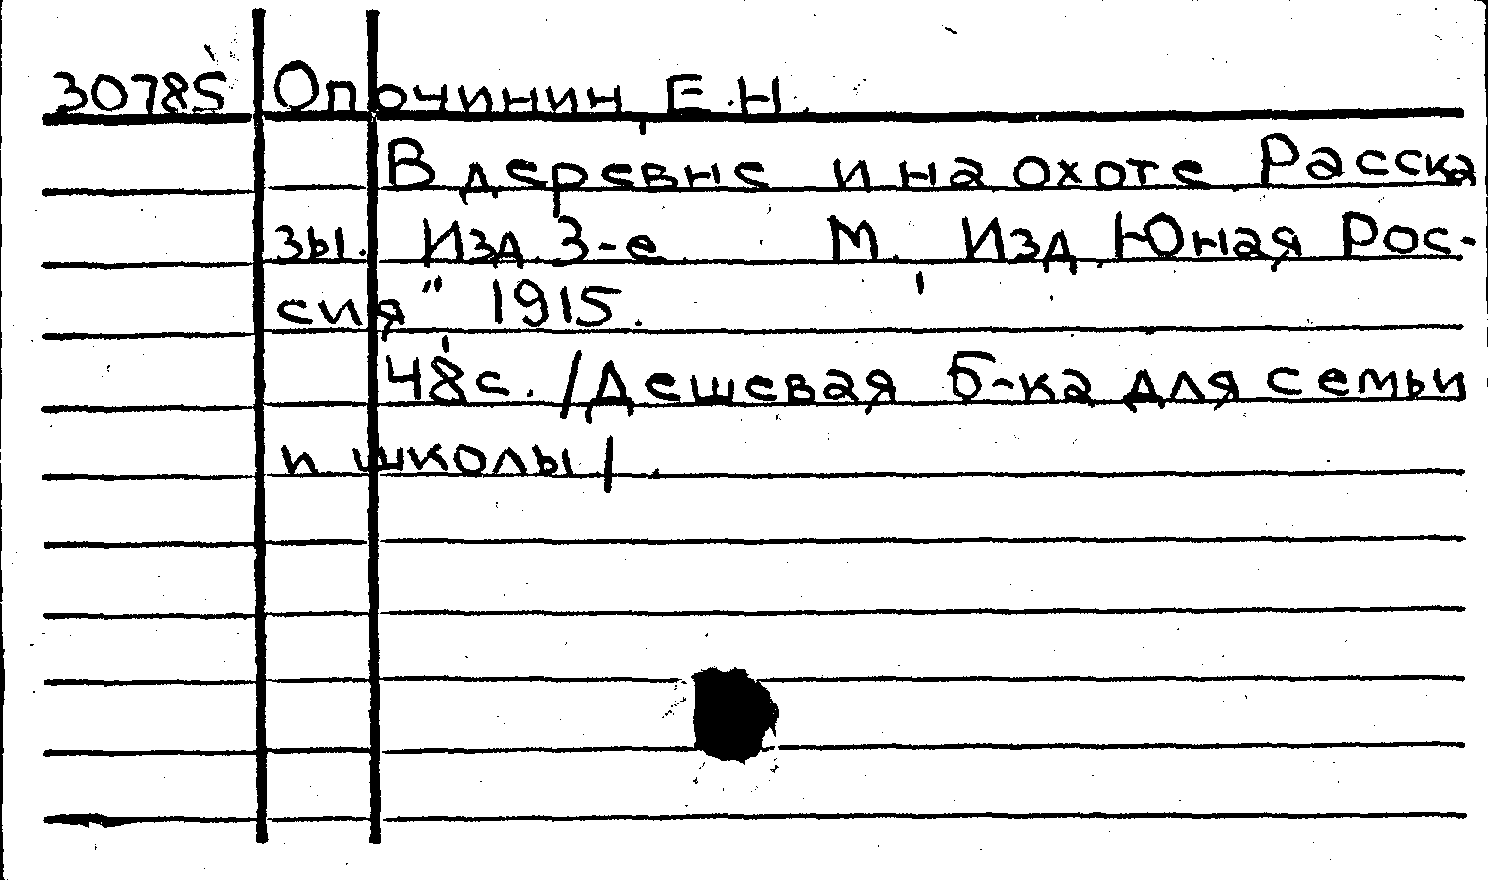 30785 Опочинин Е.Н.
В деревне и на охоте. Расска
зы. Изд. 3-е М. Изд. Юная Рос-
сия" 1915.
48с. /Дешевая б-ка для семьи
и школы/.